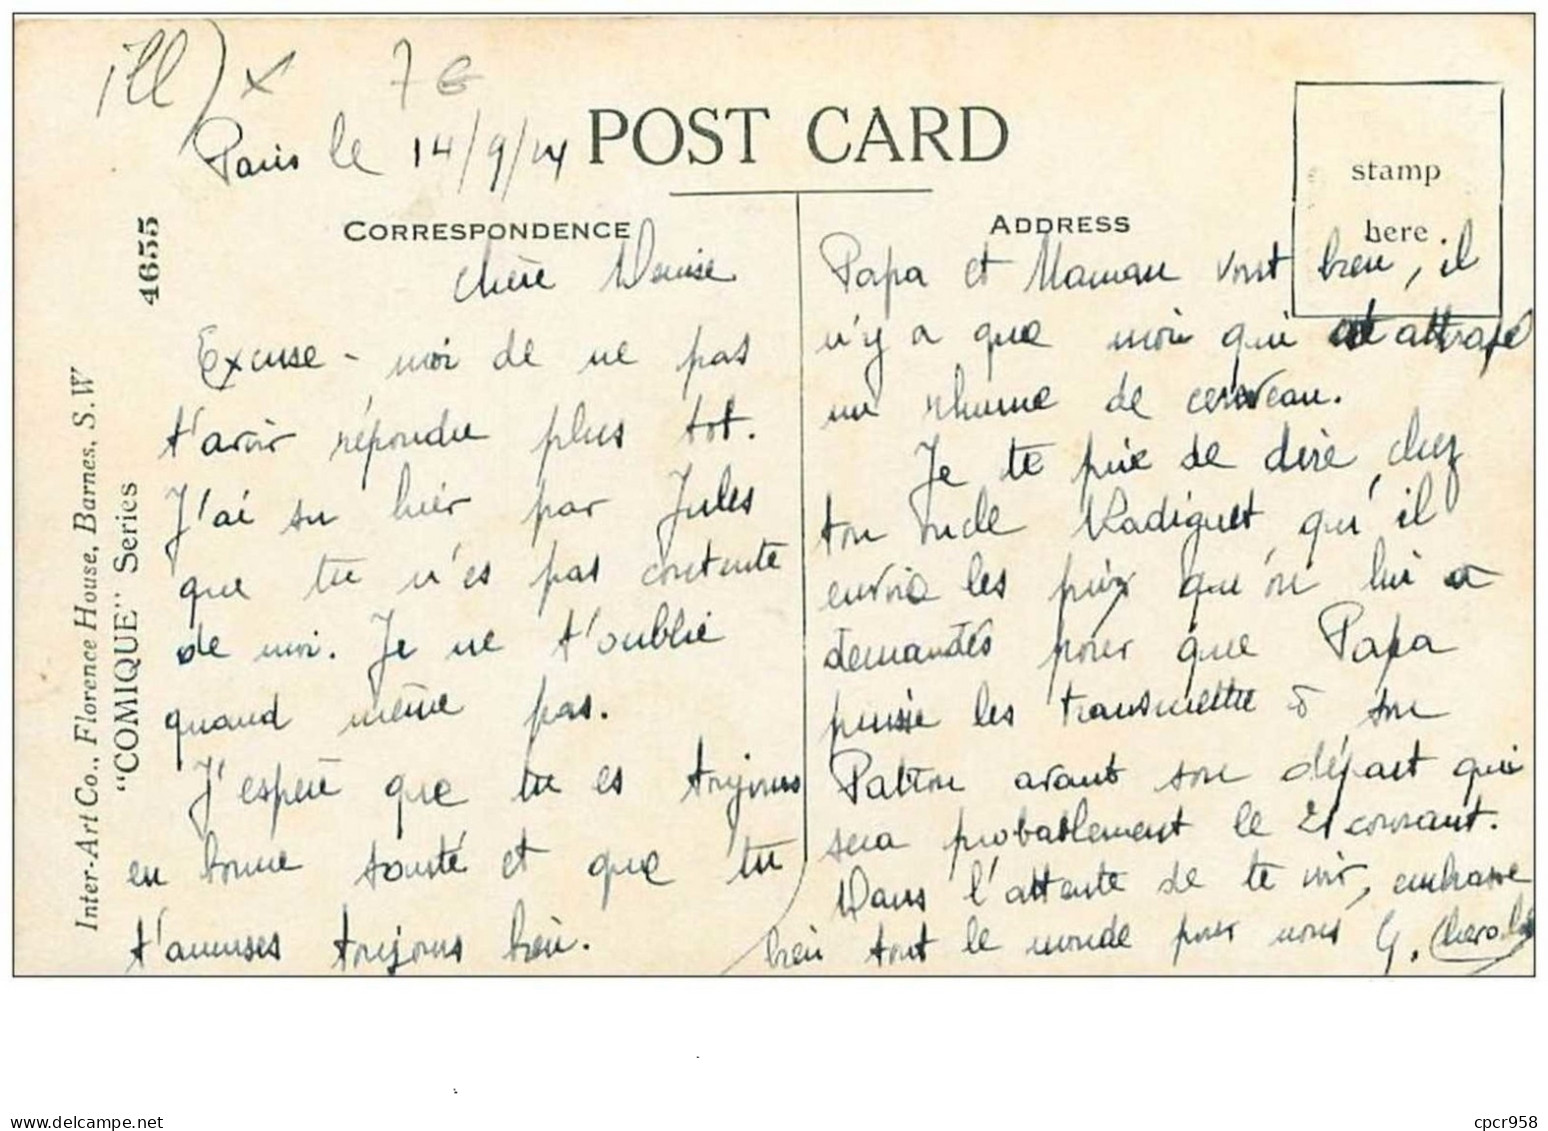 ill) x 7€
Paris le 14/9/24
POST CARD
stamp
here
CORRESPONDENCE
ADDRESS
4655
Inter-Art Co., Florence House, Barnes, S.W
"COMIQUE" Series
Chère Denise
Excuse-moi de ne pas
t'avoir répondu plus tot.
J'ai su hier par Jules
que tu n'es pas contente
de moi. Je ne t'oublie
quand même pas.
J'espère que tu es toujours
en bonne santé et que tu
t'amuses toujours bien.
Papa et Maman vont bien, il
n'y a que moi qui ai attrapé
un rhume de cerveau.
Je te prie de dire chez
ton oncle Radiguet qu'il
envoie les prix qu'on lui a
demandés pour que Papa
puisse les transmettre à son
Patron avant son départ qui
sera probablement le 21 courant.
Dans l'attente de te voir, embrasse
bien tout le monde pour nous G.
delcampe.net
cpcr958